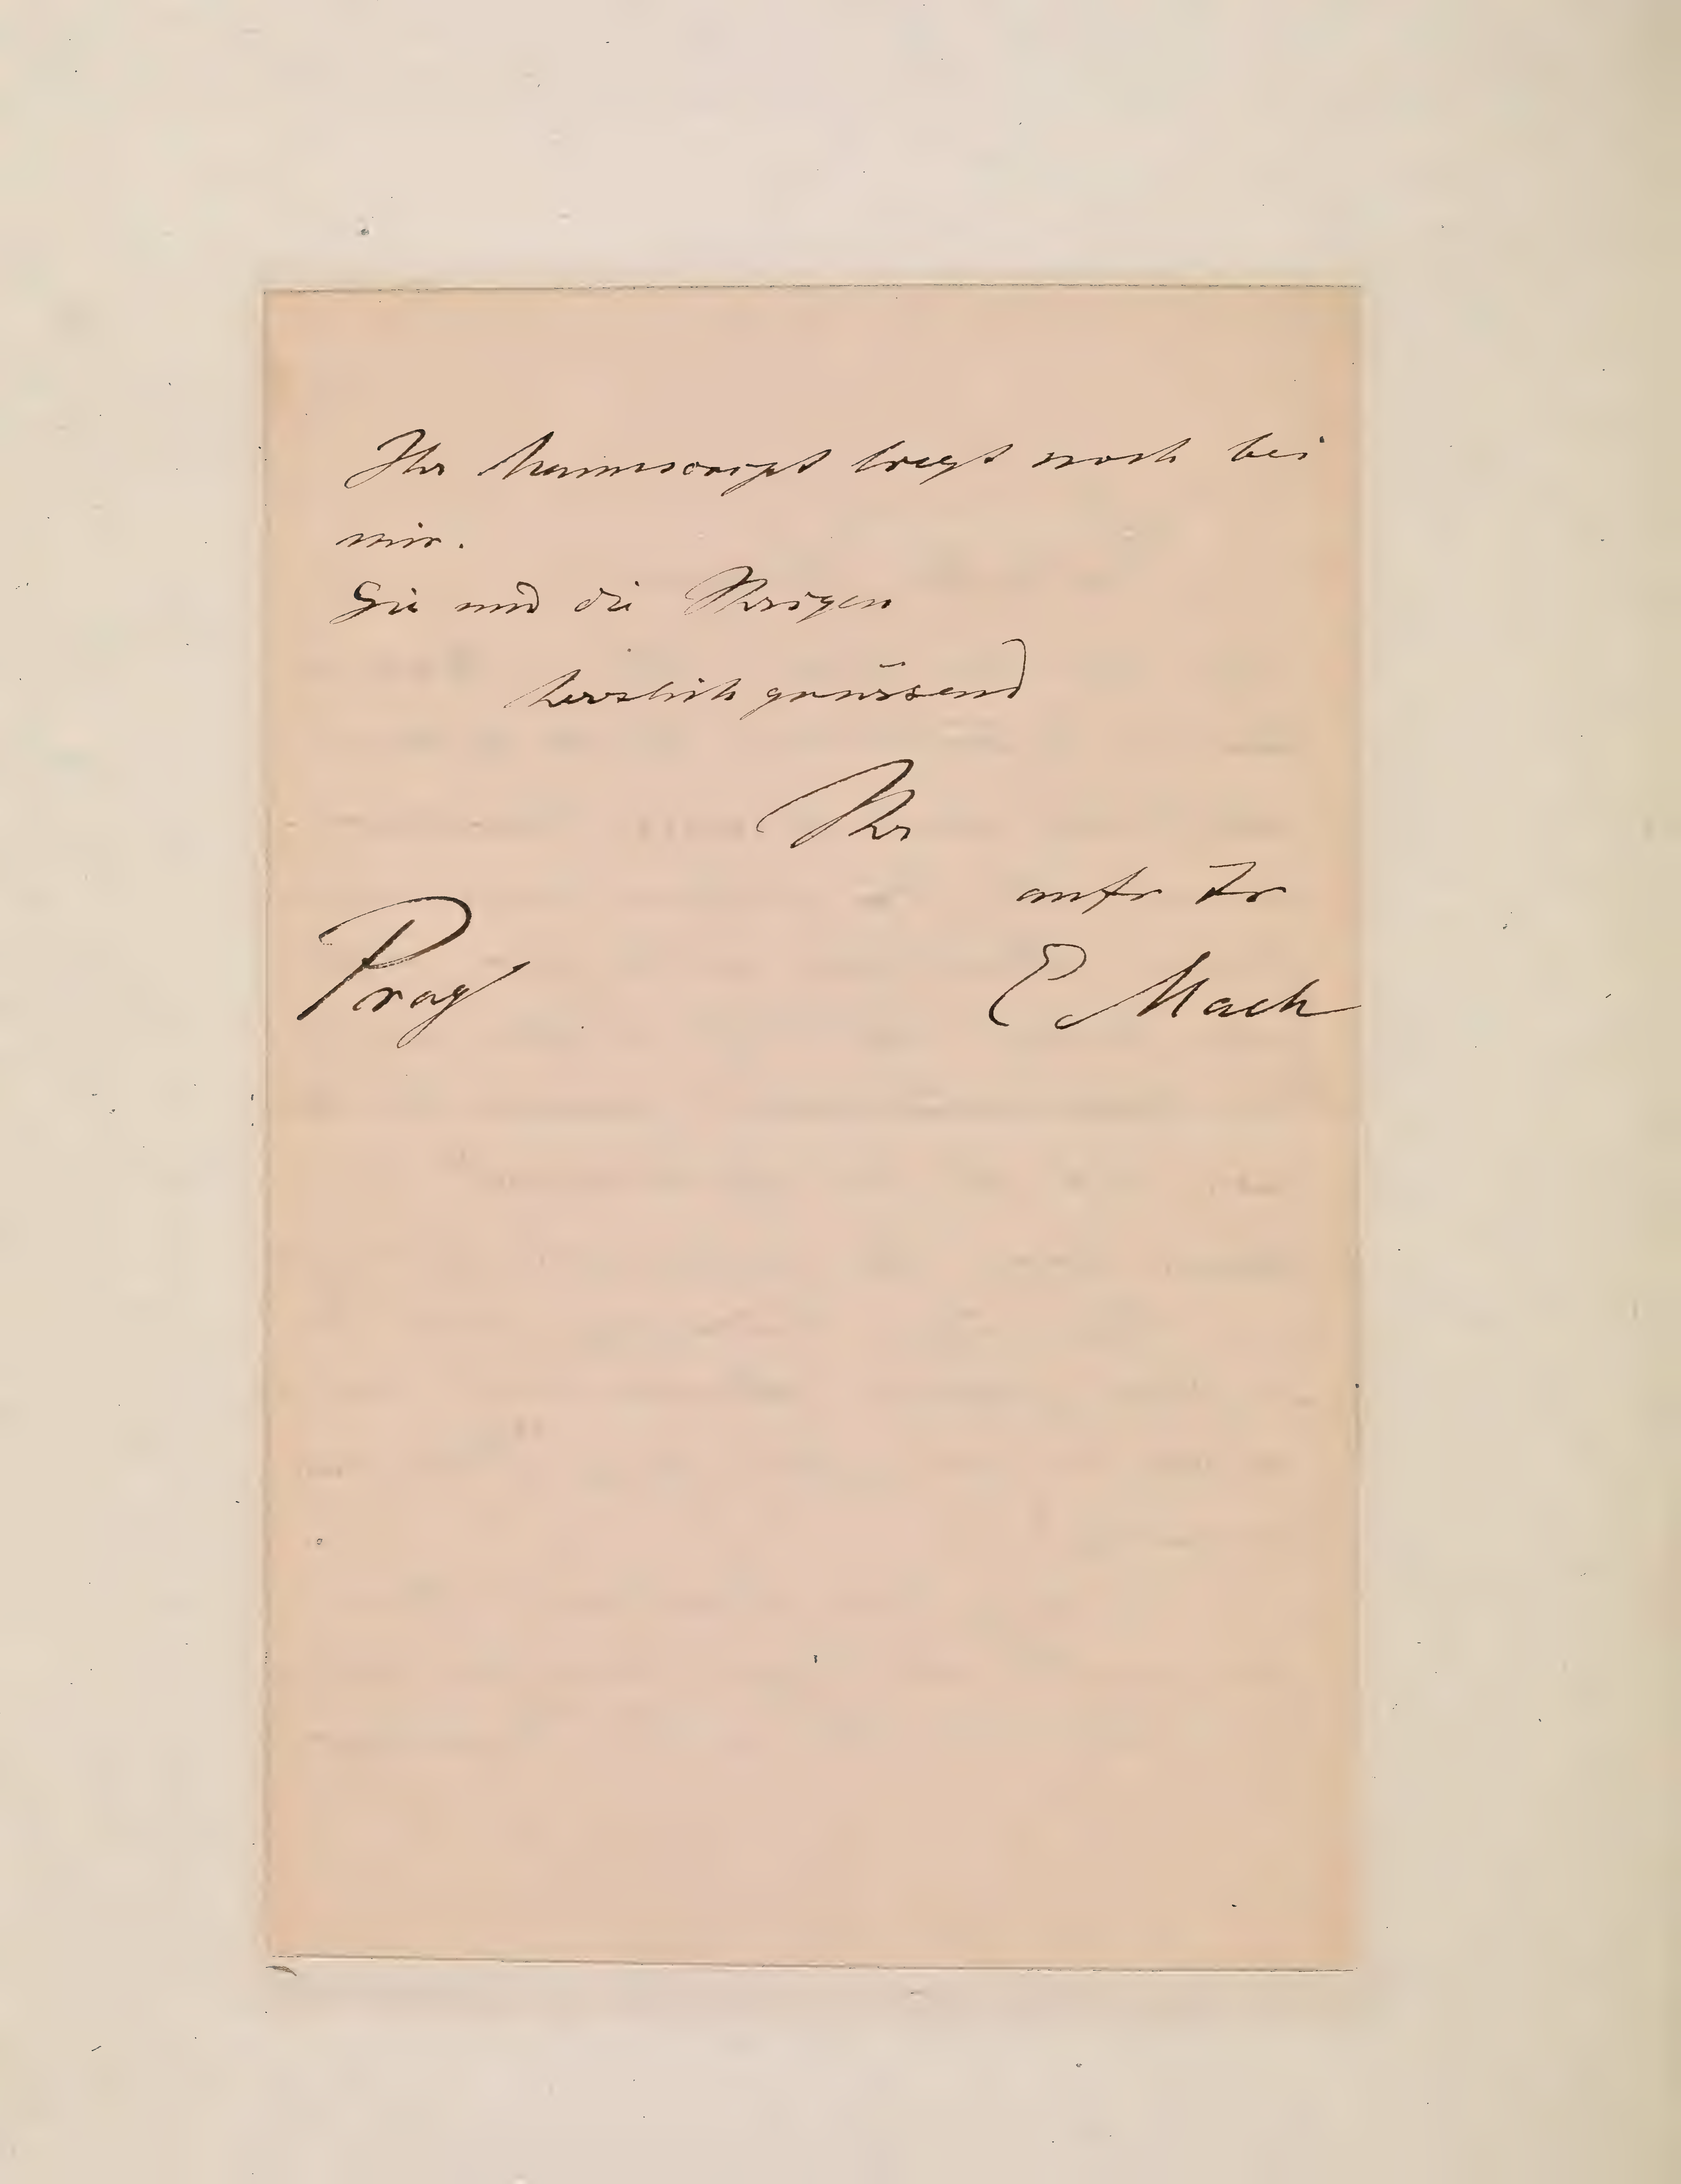 Ihr Manuscript liegt noch bei
mir.
Sie und die Ihrigen
herzlich grüssend
Ihr
aufr Fr
Prag
E Mach